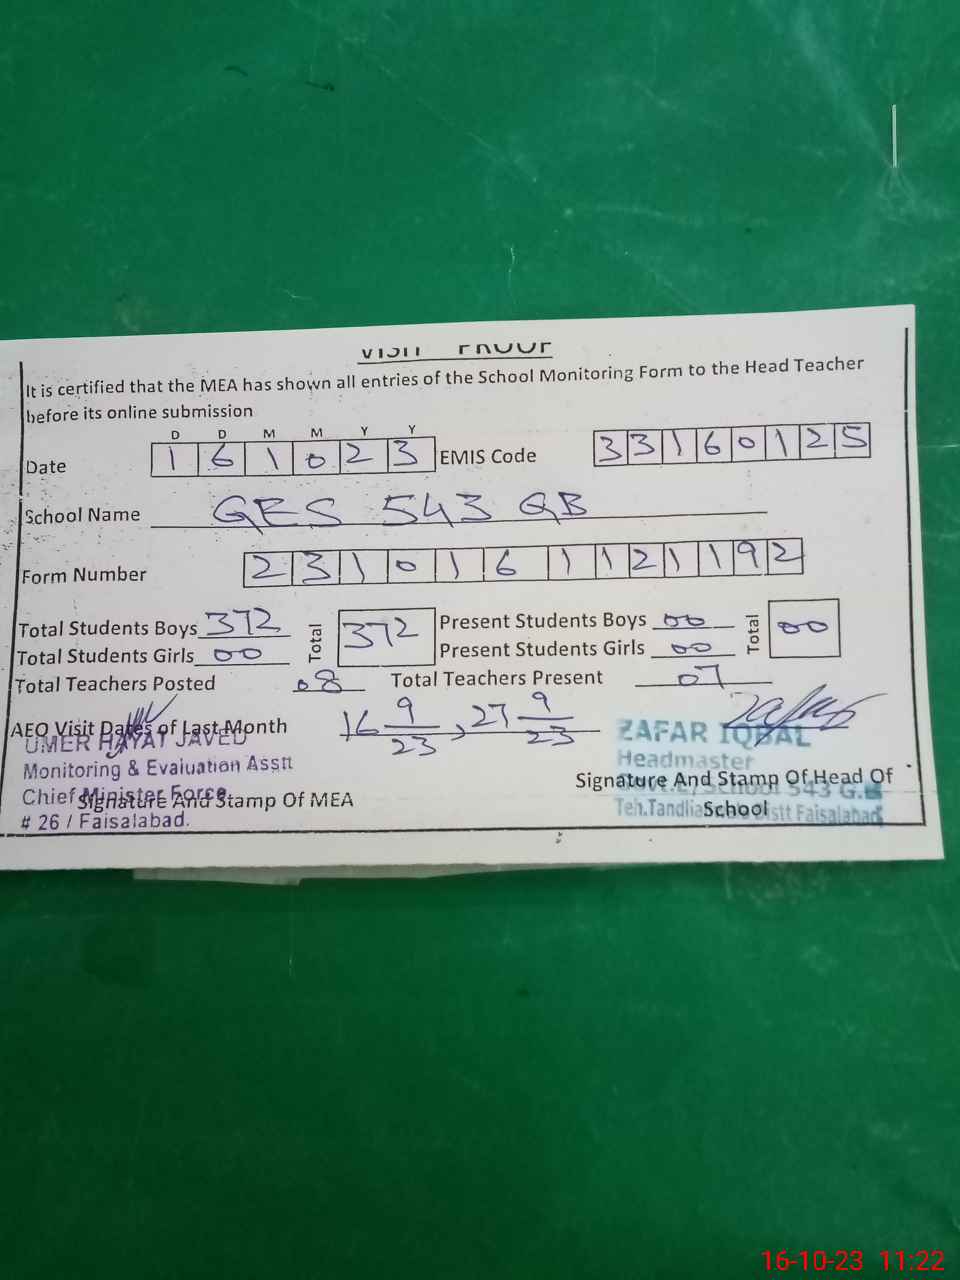 VISIT PROOF
It is certified that the MEA has shown all entries of the School Monitoring Form to the Head Teacher
before its online submission
D D M M Y Y
Date 1 6 1 0 2 3 EMIS Code 3 3 1 6 0 1 2 5
School Name GES 543 GB
Form Number 2 3 1 0 1 6 1 1 2 1 1 9 2
Total Students Boys 372 Total 372 Present Students Boys 00 Total 00
Total Students Girls 00 Present Students Girls 00
Total Teachers Posted 08 Total Teachers Present 07
AEO Visit Dates of Last Month 16 9/23, 27 9/23
UMER HAYAT JAVED
Monitoring & Evaluation Asstt
Chief Minister Force
# 26 / Faisalabad.
Signature And Stamp Of MEA
Zafar
ZAFAR IQBAL
Headmaster
Govt. E/School 543 G.B
Teh. Distt Faisalabad
Signature And Stamp Of Head Of
School
16-10-23 11:22